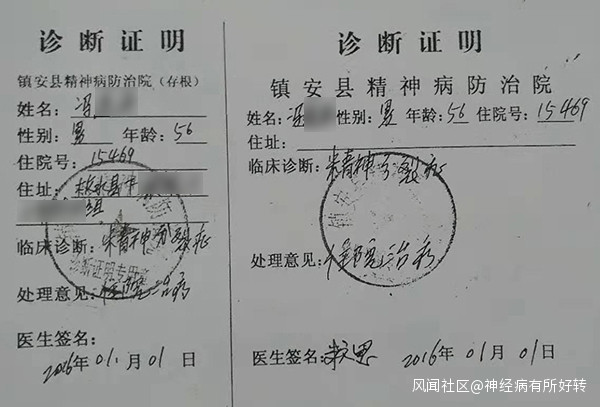 诊断证明
镇安县精神病防治院（存根）
姓名：冯
性别：男 年龄：56
住院号：15469
住址：柞水县
组
临床诊断：精神分裂症
诊断证明专用章
处理意见：住院治疗
医生签名：
2016年01月01日
诊断证明
镇安县精神病防治院
姓名：冯 性别：男 年龄：56 住院号：15469
住址：
临床诊断：精神分裂症
镇安
处理意见：住院治疗
医生签名： 2016年01月01日
风闻社区@神经病有所好转